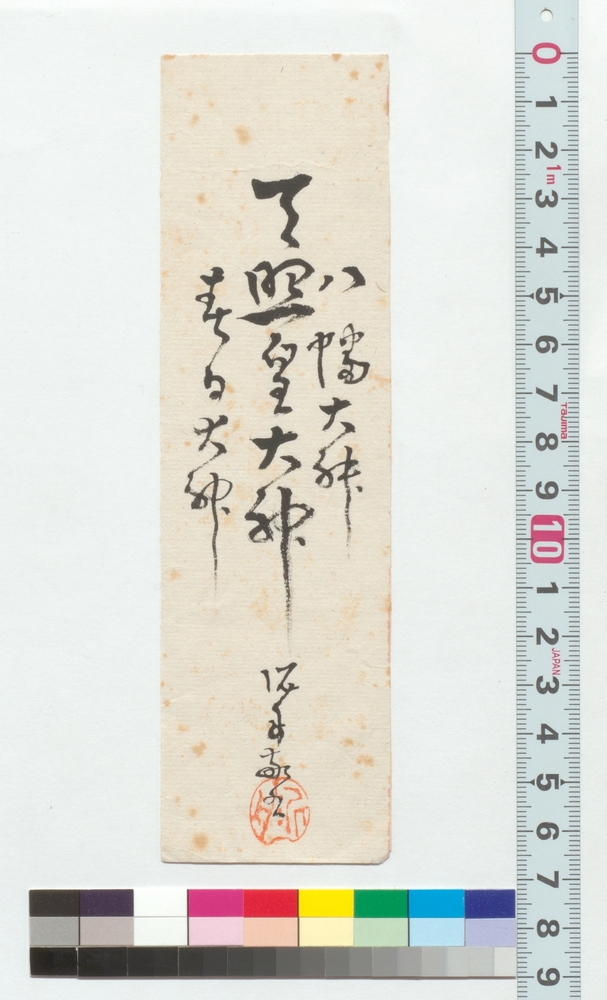 八幡大神
天照皇大神
春日大神
敬書
0
1
2
1m
3
4
5
6
7
Tajima
8
9
10
1
2
JAPAN
3
4
5
6
7
8
9